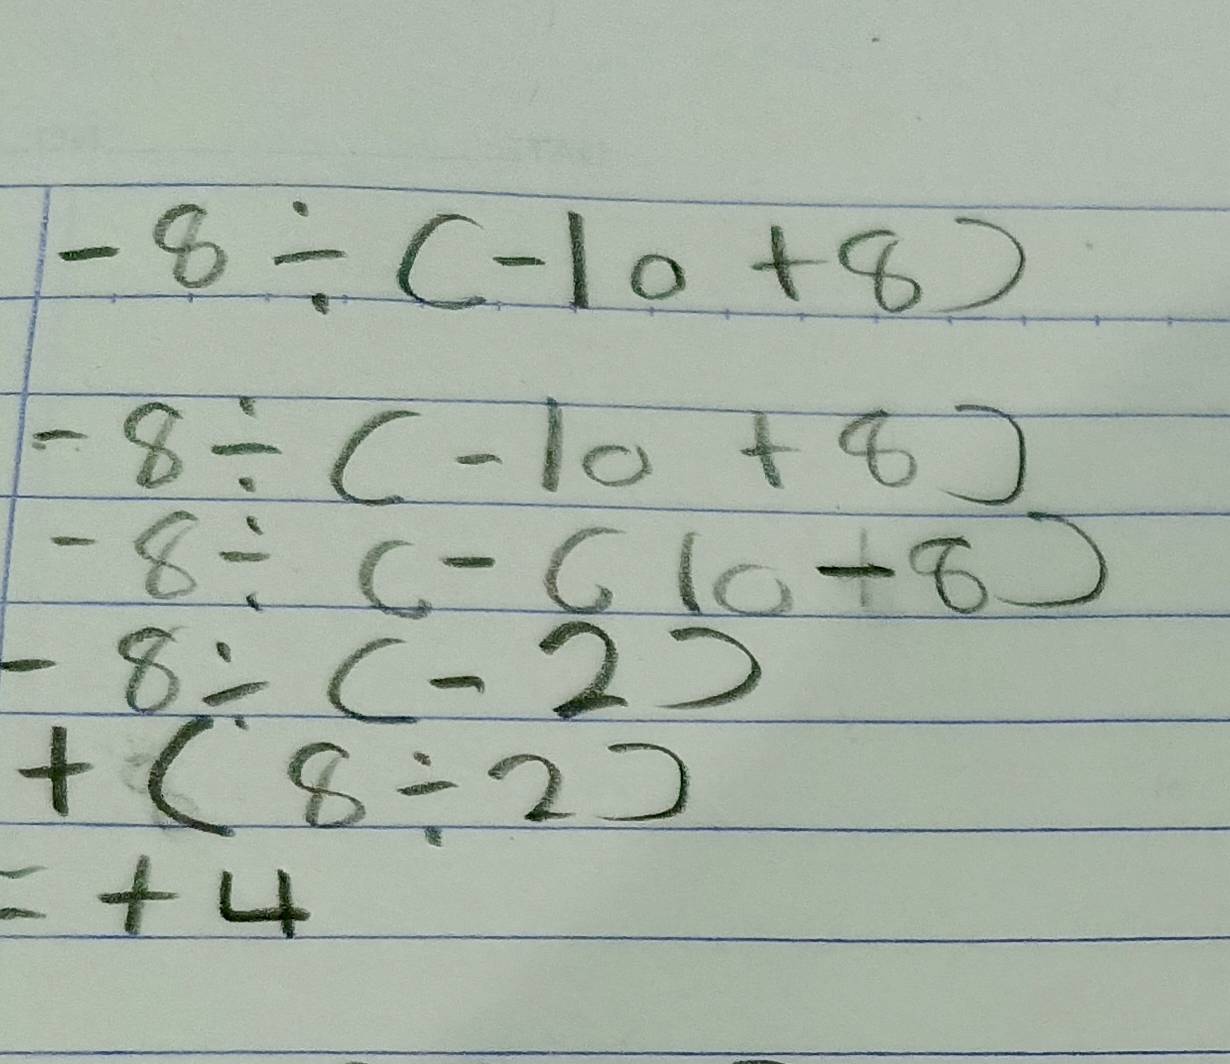 -8÷(-10+8)
-8÷(-10+8)
-8÷(-(10+8)
-8÷(-2)
+(8÷2)
=+4